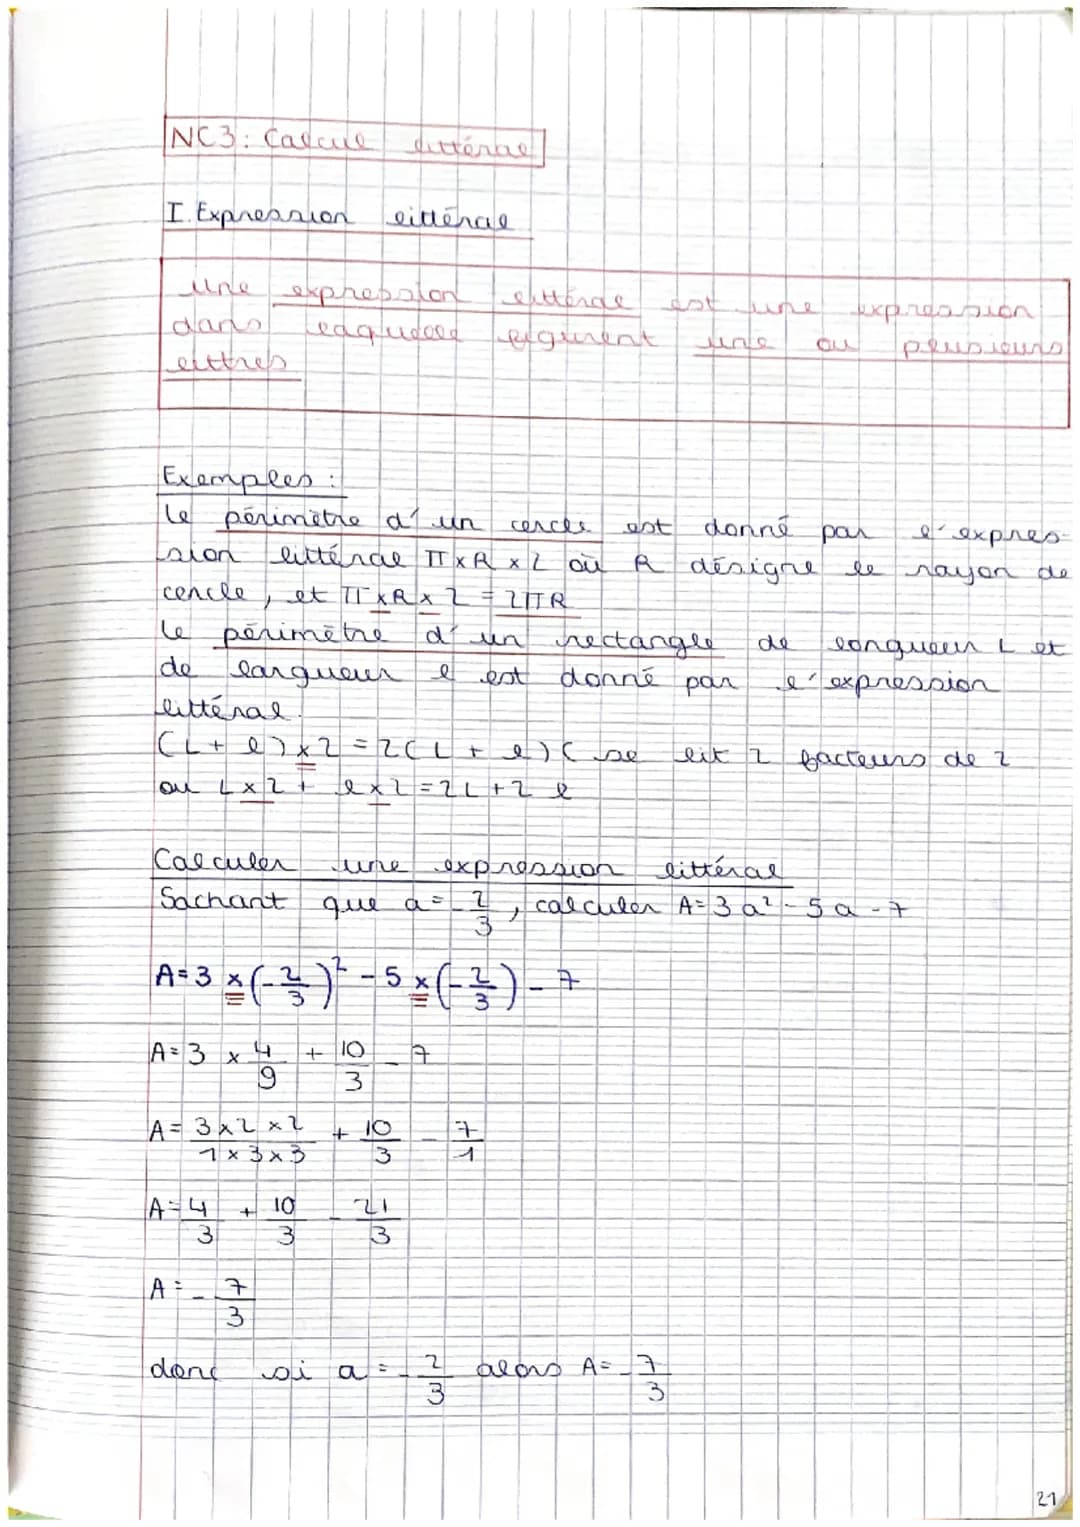 NC3: Calcul littéral
I. Expression littéral
Une expression littérale est une expression
dans laquelle figurent une ou plusieurs
lettres
Exemples :
Le périmètre d'un cercle est donné par l'expres-
sion littérale π×R×2 où R désigne le rayon de
cercle, et π×R×2 = 2πR
Le périmètre d'un rectangle de longueur L et
de largueur l est donné par l'expression
littéral.
(L + l)×2 = 2(L + l) ( se lit 2 facteurs de 2
ou L×2 + l×2 = 2L + 2 l
Calculer une expression littéral
Sachant que a = -2/3, calculer A = 3a² - 5a - 7
A = 3 × (-2/3)² - 5 × (-2/3) - 7
A = 3 × 4/9 + 10/3 - 7
A = 3×2×2/1×3×3 + 10/3 - 7/1
A = 4/3 + 10/3 - 21/3
A = -7/3
donc si a = -2/3 alors A = -7/3
21